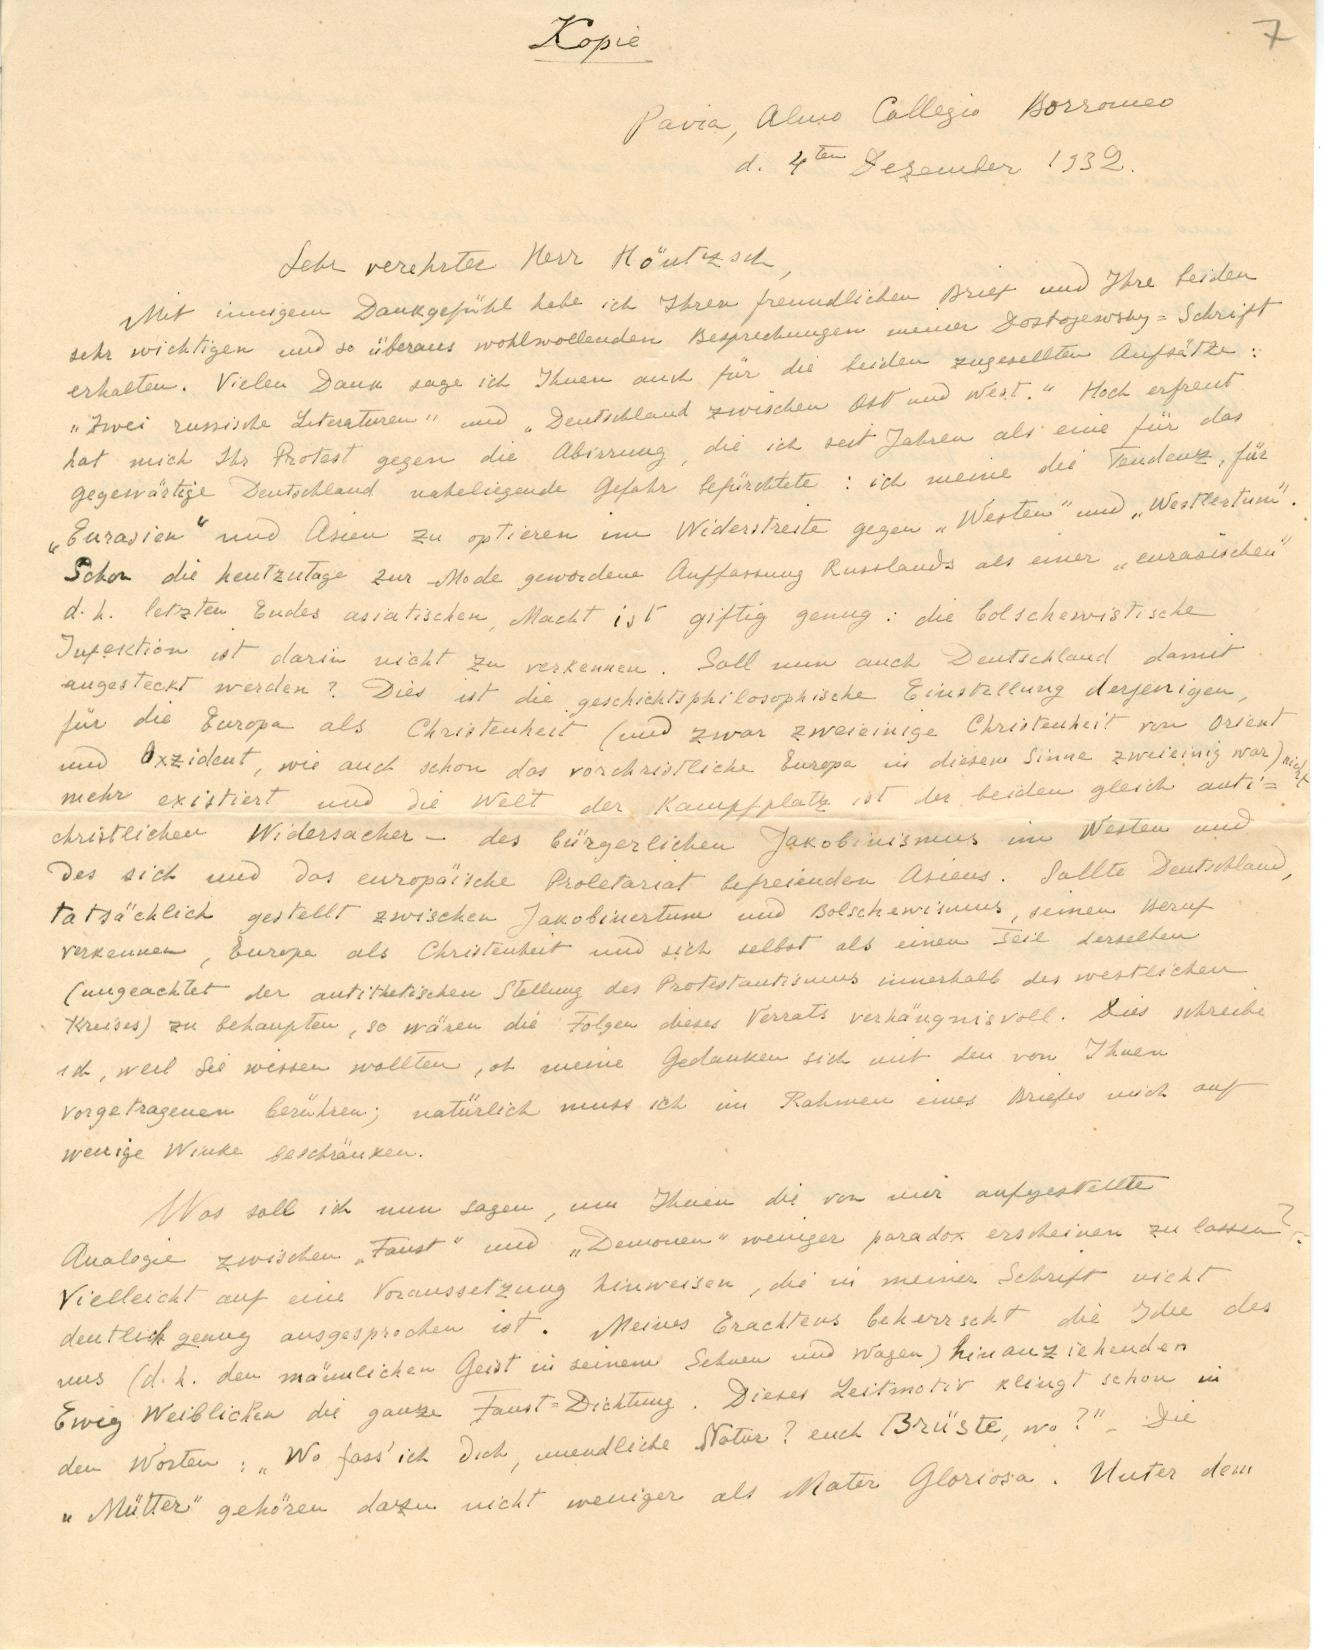 Kopie
7
Pavia, Almo Collegio Borromeo
d. 4ten Dezember 1932.
Sehr verehrter Herr Höntzsch,
Mit innigem Dankgefühl habe ich Ihren freundlichen Brief und Ihre beiden
sehr wichtigen und so überaus wohlwollenden Besprechungen meiner Dostojewsky=Schrift
erhalten. Vielen Dank sage ich Ihnen auch für die beiden zugesellten Aufsätze:
„Zwei russische Literaturen" und „Deutschland zwischen Ost und West." Hoch erfreut
hat mich Ihr Protest gegen die Abirrung, die ich seit Jahren als eine für das
gegenwärtige Deutschland naheliegende Gefahr befürchtete: ich meine die Tendenz, für
„Eurasien" und Asien zu optieren im Widerstreite gegen „Westen" und „Westlertum".
Schon die heutzutage zur Mode gewordene Auffassung Russlands als einer „eurasischen"
d. h. letzten Endes asiatischen, Macht ist giftig genug: die bolschewistische
Infektion ist darin nicht zu verkennen. Soll nun auch Deutschland damit
angesteckt werden? Dies ist die geschichtsphilosophische Einstellung derjenigen,
für die Europa als Christenheit (und zwar zweieinige Christenheit von Orient
und Okzident, wie auch schon das vorchristliche Europa in diesem Sinne zweieinig war) nicht
mehr existiert und die Welt der Kampfplatz ist der beiden gleich anti=
christlichen Widersacher – des bürgerlichen Jakobinismus im Westen und
des sich und das europäische Proletariat befreienden Asiens. Sollte Deutschland,
tatsächlich gestellt zwischen Jakobinertum und Bolschewismus, seinen Beruf
verkennen, Europa als Christenheit und sich selbst als einen Teil derselben
(ungeachtet der antithetischen Stellung des Protestantismus innerhalb des westlichen
Kreises) zu behaupten, so wären die Folgen dieses Verrats verhängnisvoll. Dies schreibe
ich, weil Sie wissen wollten, ob meine Gedanken sich mit den von Ihnen
vorgetragenen berühren; natürlich muss ich im Rahmen eines Briefes mich auf
wenige Winke beschränken.
Was soll ich nun sagen, um Ihnen die von mir aufgestellte
Analogie zwischen „Faust" und „Demonen" weniger paradox erscheinen zu lassen?
Vielleicht auf eine Voraussetzung hinweisen, die in meiner Schrift nicht
deutlich genug ausgesprochen ist. Meines Erachtens beherrscht die Idee des
uns (d. h. den männlichen Geist in seinem Sehnen und Wagen) hinanziehenden
Ewig Weiblichen die ganze Faust=Dichtung. Dieses Leitmotiv klingt schon in
den Worten: „Wo fass' ich dich, unendliche Natur? euch Brüste, wo?" – Die
„Mütter" gehören dazu nicht weniger als Mater Gloriosa. Unter dem